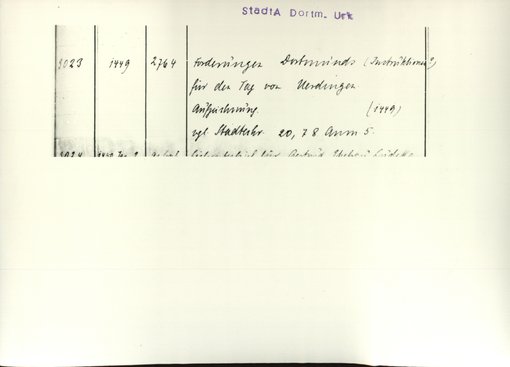 StadtA Dortm. Urk
3023 1449 2764 Forderungen Dortmunds (Instruktionen?)
für den Tag von Uerdingen
Aufzeichnung. (1449)
vgl. Stadtchr. 20, 78 Anm 5.
3024